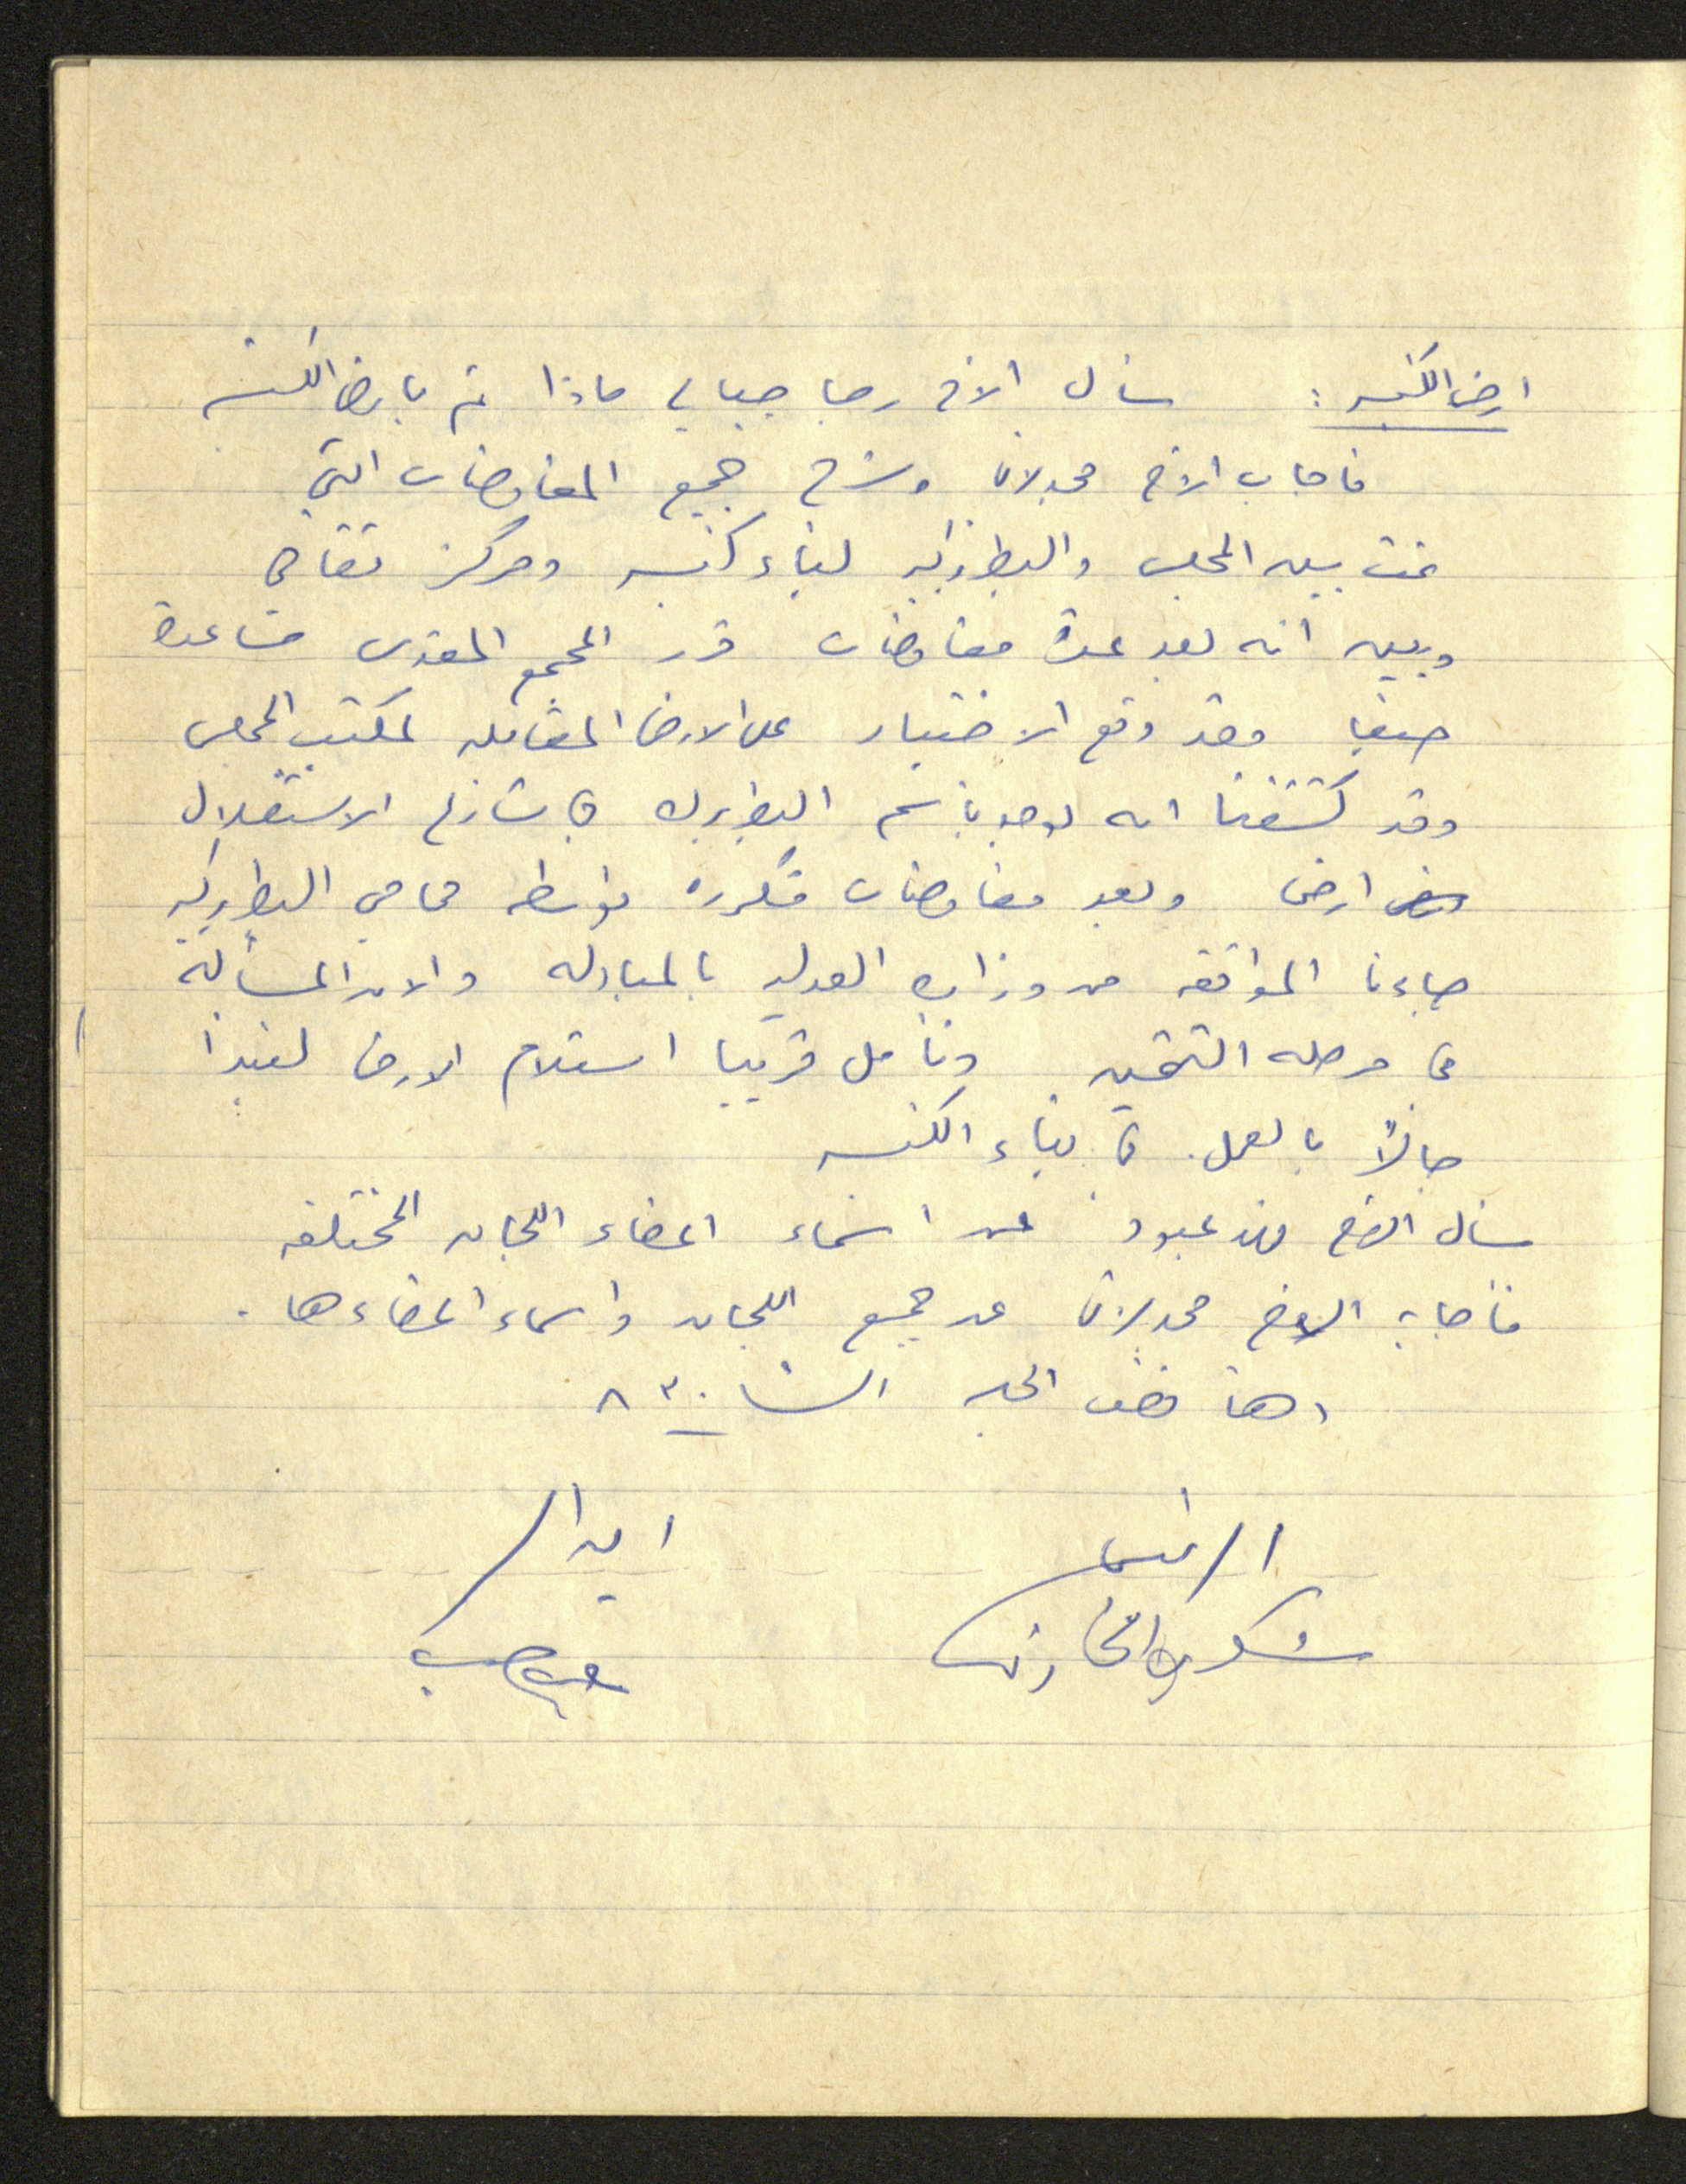 ارض الكنيسه : سأل الاخ رجا جبالي ماذا تم بارض الكنيسه
فاجاب الاخ مجدلاني وشرح جميع المفاوضات التي
تمت بين المجلس والبطريركيه لبناء كنيسه ومركز ثقافي
وبين انه بعد عدة مفاوضات قرر المجمع المقدس مساعدة
حيفا وقد وقع الاختيار على الارض المقابله لمكتب المجلس
وقد كشفنا انه يوجد باسم البطريرك في شارع الاستقلال
ارض وبعد مفاوضات متكرره بواسطه محامي البطريركيه
جاءنا الموافقه من وزاره العدليه بالمبادله والان المسأله
في مرحله التخمين ونأمل قريبا استلام الارض لنبدأ
حالاً بالعمل في بناء الكنيسه
سأل الاخ فهد عبود عن اسماء اعضاء اللجان المختلفه
فأجابه الاخ مجدلاني عن جميع اللجان واسماء اعضاءها .
وهنا فضت الجلسه الساعه ٨٣٠
الرئيس امين السر
شكري الخازن